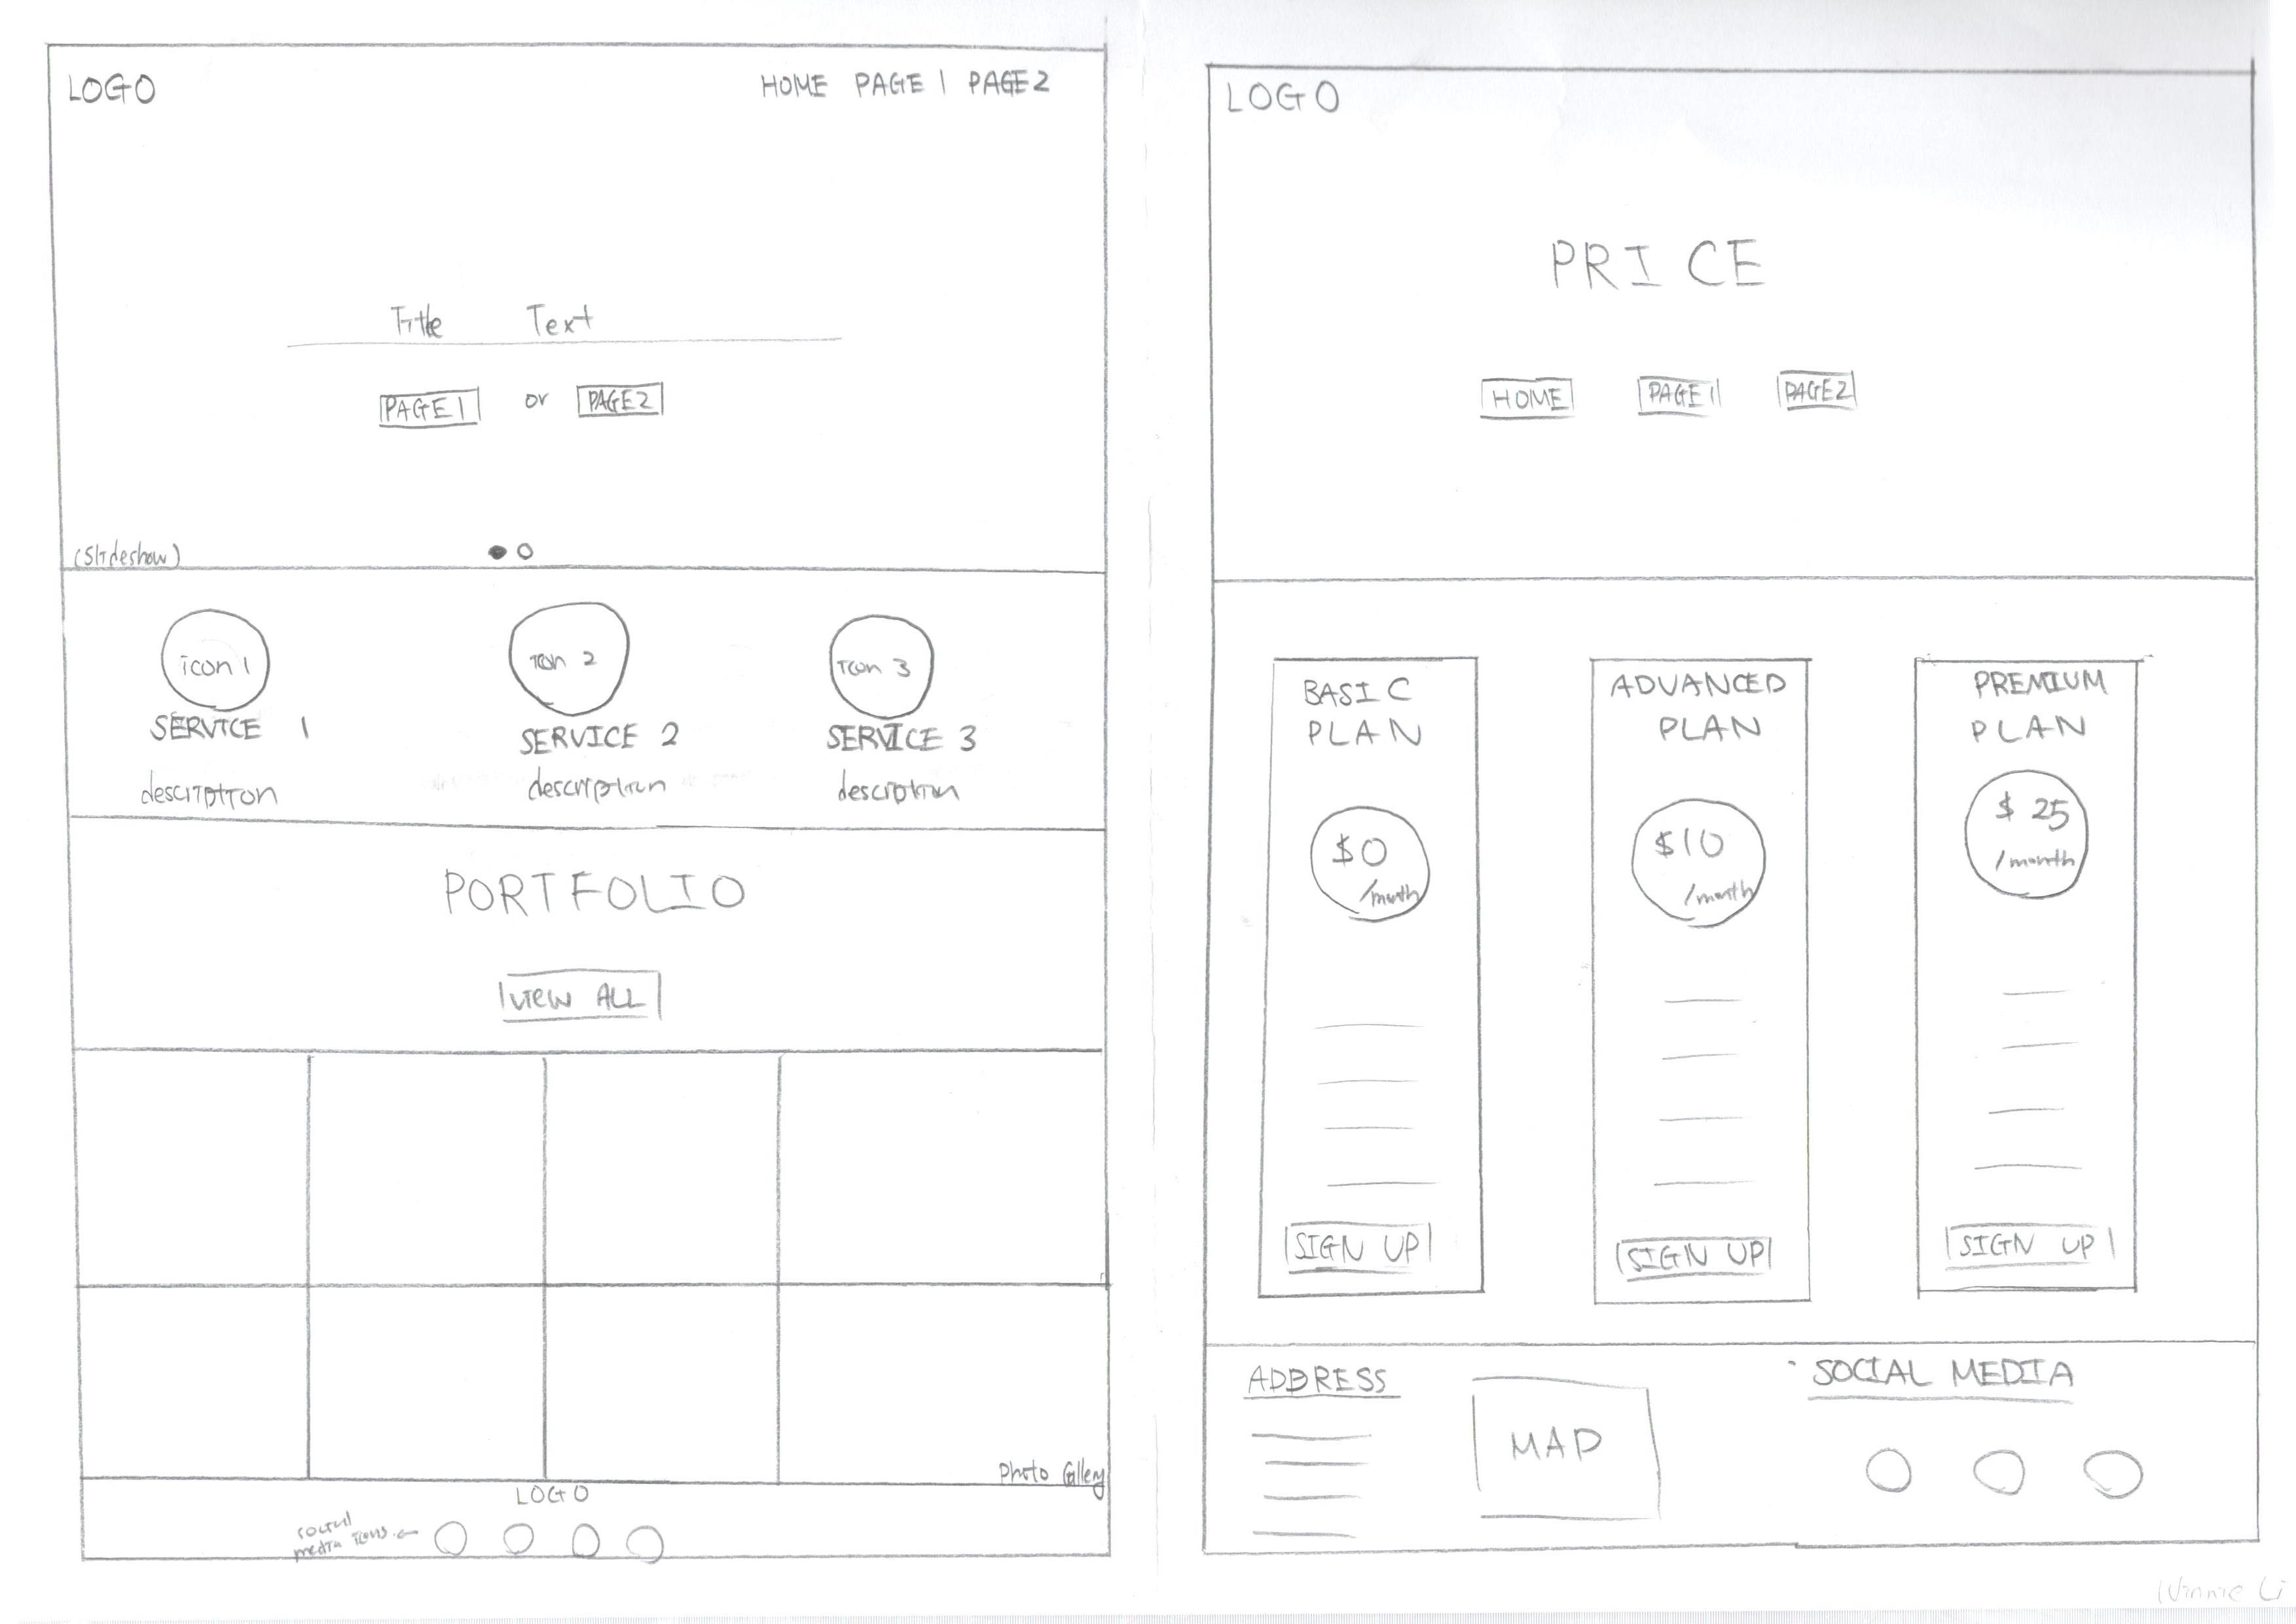 LOGO
HOME PAGE 1 PAGE 2
Title Text
PAGE 1 or PAGE 2
(Slideshow)
icon 1
icon 2
icon 3
SERVICE 1
SERVICE 2
SERVICE 3
description
description
description
PORTFOLIO
VIEW ALL
Photo Gallery
LOGO
social
media icons
LOGO
PRICE
HOME PAGE 1 PAGE 2
BASIC
PLAN
$0
/month
SIGN UP
ADVANCED
PLAN
$10
/month
SIGN UP
PREMIUM
PLAN
$25
/month
SIGN UP
ADDRESS
MAP
SOCIAL MEDIA
Winnie Li